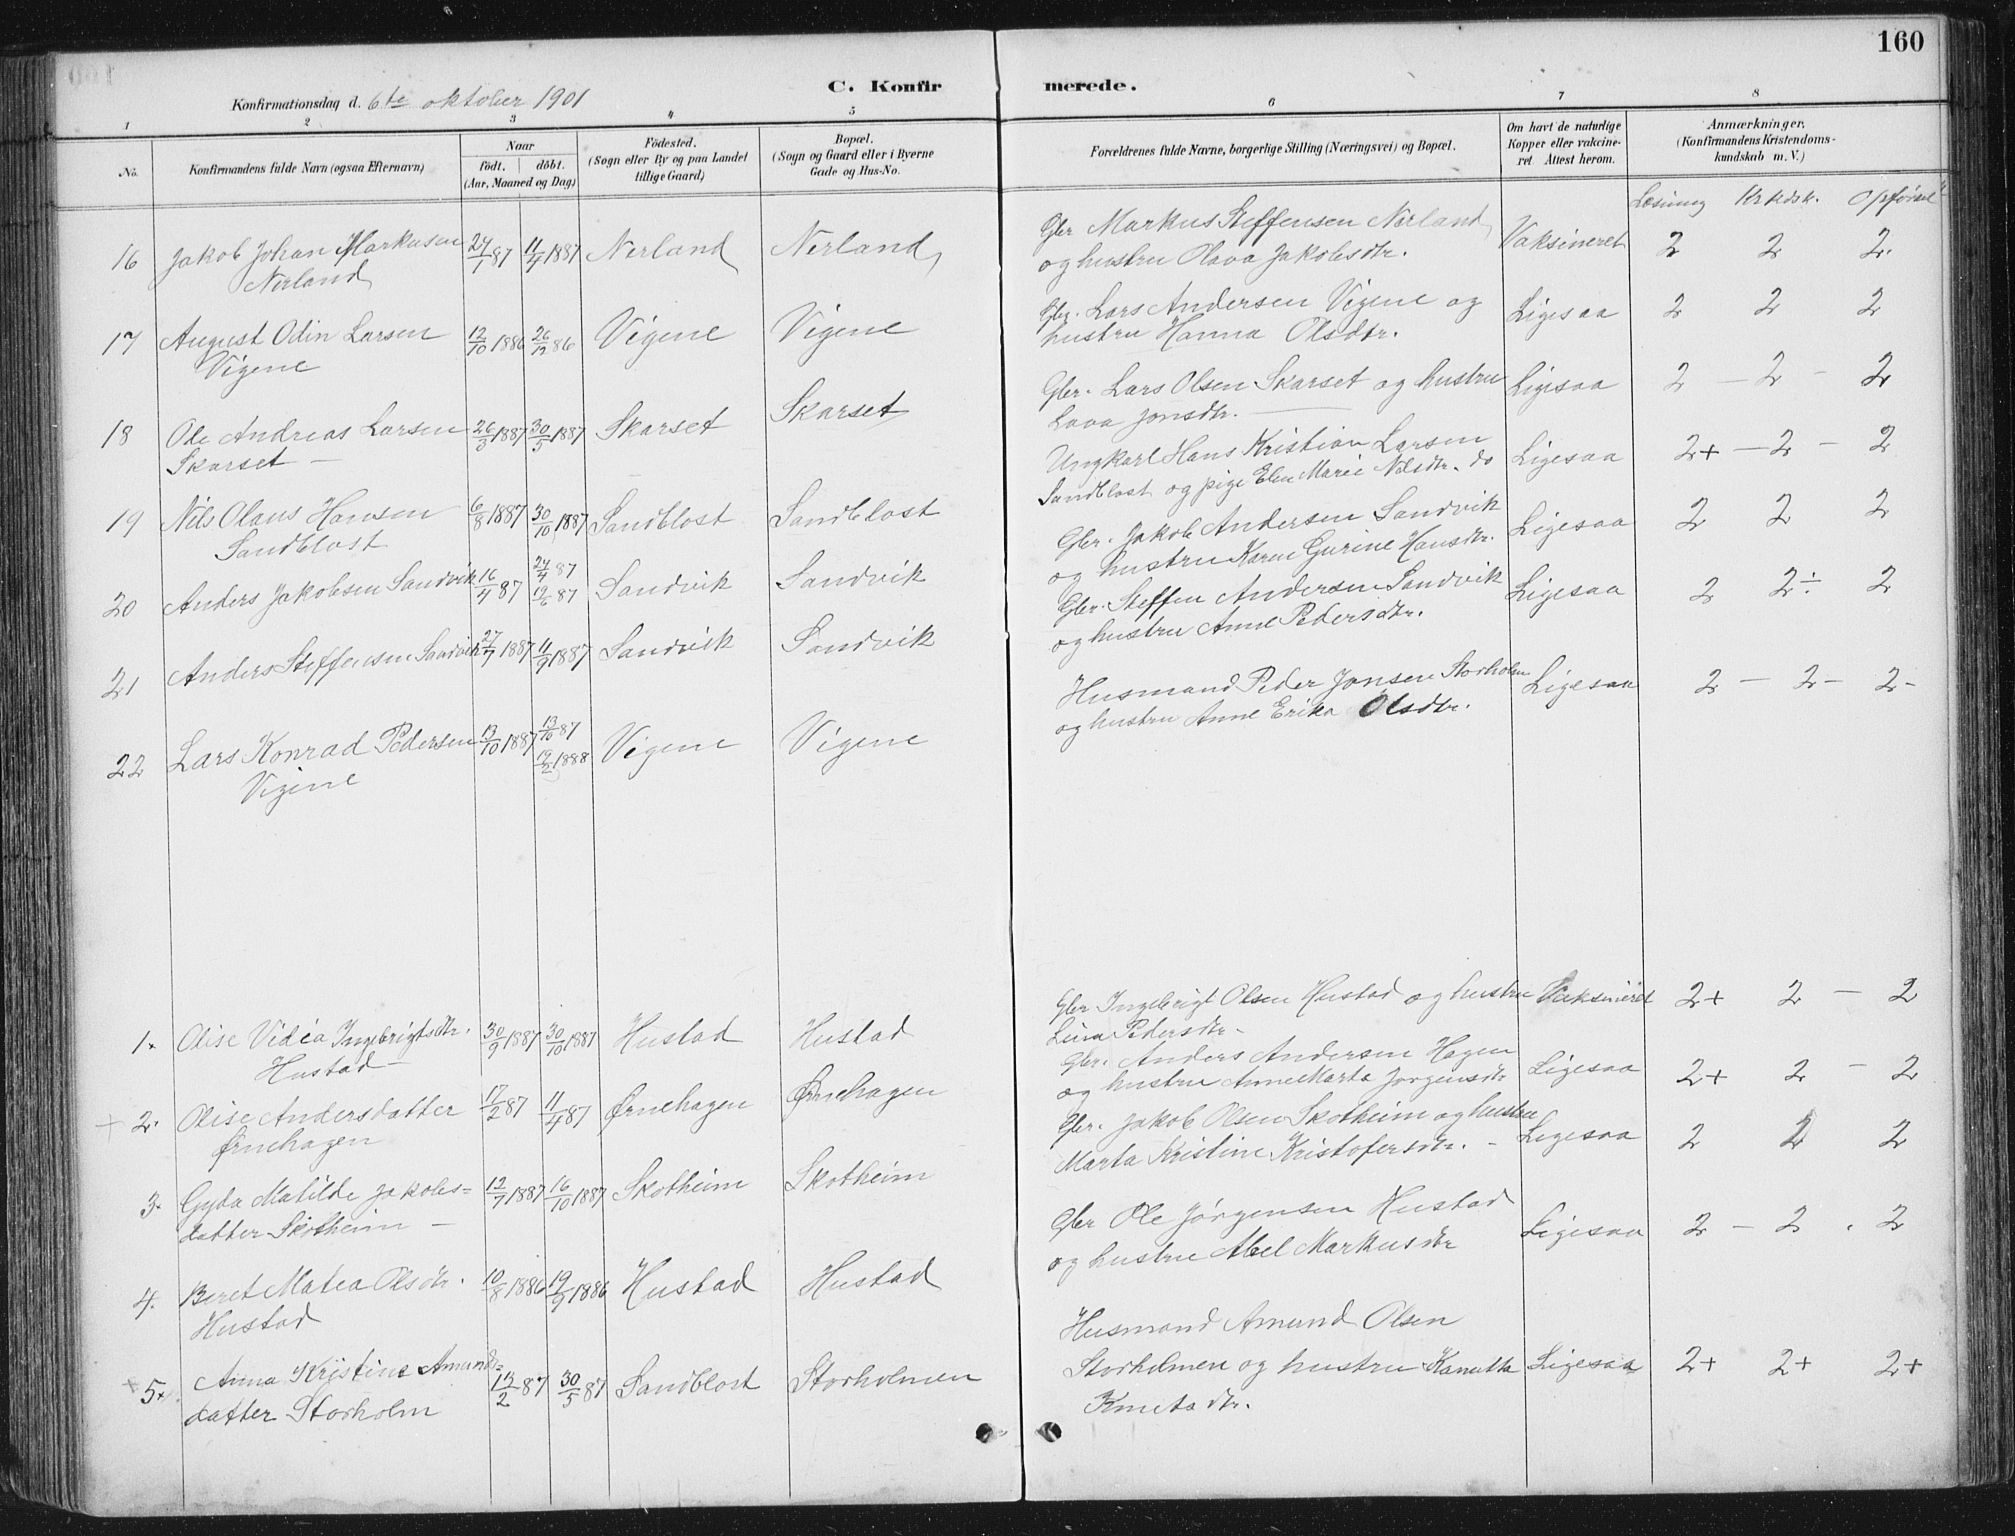 160
C. Konfirmerede.
Konfirmationsdag d. 6te oktober 1901
1 2 3 4 5 6 7 8
No. Konfirmandens fulde Navn (ogsaa Efternavn) Naar født. døbt. (Aar, Maaned og Dag) Fødested. (Sogn eller By og paa Landet tillige Gaard) Bopæl. (Sogn og Gaard eller i Byerne Gade og Hus-No. Forældrenes fulde Navne, borgerlige Stilling (Næringsvei) og Bopæl. Om havt de naturlige Kopper eller vakcineret Attest herom. Anmærkninger. (Konfirmandens Kristendomskundskab m.V.)
Læsning Krkdsk. Opførsel
16 Jakob Johan Markusen Nerland 24/1 87 11/4 1887 Nerland Nerland Gbr Markus Steffensen Nerland og hustru Olava Jakobsdtr. Vaksineret 2 2 2.
17 August Odin Larsen Vigene 12/10 1886 26/12 86 Vigene Vigene Gbr. Lars Andersen Vigene og hustru Hanna Olsdtr. Ligesaa 2 2 2
18 Ole Andreas Larsen Skarset — 26/3 1887 30/5 1887 Skarset Skarset Gbr. Lars Olsen Skarset og hustru Lava Jonsdtr. — Ligesaa 2 — 2 — 2
19 Nils Olaus Hansen Sandblost 6/8 1887 30/10 1887 Sandblost Sandblost Ungkarl Hans Kristian Larsen Sandblost og pige Elen Marie Nilsdtr. do Ligesaa 2+ — 2 — 2
20 Anders Jakobsen Sandvik 16/4 87 24/4 87 12/6 87 Sandvik Sandvik Gbr. Jakob Andersen Sandvik og hustru Karen Gurine Hansdtr. Ligesaa 2 2 2
21 Anders Steffensen Sandvik 27/7 1887 11/9 1887 Sandvik Sandvik Gbr. Steffen Andersen Sandvik og hustru Anne Pedersdtr. Ligesaa 2 2÷ 2
22 Lars Konrad Pedersen Vigene 13/10 1887 13/10 87 12/2 1888 Vigene Vigene Husmand Peder Jonsen Storholm og hustru Anne Erika Olsdtr. Ligesaa 2 — 2 — 2 -
1. Olise Videa Ingebrigtsdtr. Hustad 30/9 1887 30/10 1887 Hustad Hustad Gbr Ingebrigt Olsen Hustad og hustru Lina Pedersdtr — Vaksineret 2+ 2 — 2
+ 2. Olise Andersdatter Ørnehagen 17/2 87 11/4 87 Ørnehagen Ørnehagen Gbr. Anders Andersen Hagen og hustru Anne Marta Jørgensdtr Ligesaa 2+ 2 — 2
3. Gyda Matilde Jakobsdatter Skotheim — 12/7 1887 16/10 1887 Skotheim Skotheim Gbr. Jakob Olsen Skotheim og hustru Marta Kristine Kristofersdtr. — Ligesaa 2 2 2
4. Beret Matea Olsdtr. Hustad 10/8 1886 19/9 1886 Hustad Hustad Gbr Ole Jørgensen Hustad og hustru Abel Markusdtr Ligesaa 2 — 2 . 2
+ 5. Anna Kristine Amundsdatter Storholm 13/2 87 30/5 87 Sandblost Storholmen Husmand Amund Olsen Storholmen og hustru Kanutta Knutsdtr. Ligesaa 2+ 2+ 2+